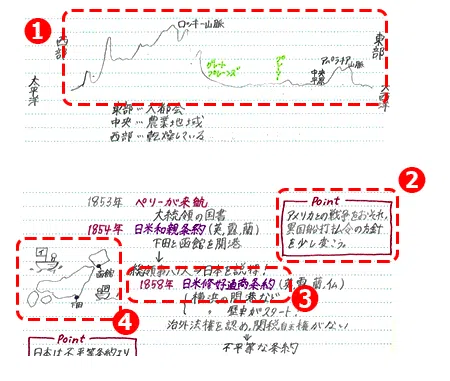 1
ロッキー山脈
西部
東部
太平洋
グレートプレーンズ
プレーリー
中央平原
アパラチア山脈
大西洋
東部…大都会
中央…農業地域
西部…乾燥している
2
1853年 ペリーが来航
大統領の国書
1854年 日米和親条約(英露,蘭)
下田と函館を開港
Point
アメリカとの戦争をおそれ、
異国船打払令の方針
を少し変こう。
日本を説得!
1858年 日米修好通商条約(英露,蘭,仏)
3
横浜の開港など
貿易がスタート。
治外法権を認め,関税自主権がない
不平等な条約
函館
下田
4
Point
日本は不平等条約より